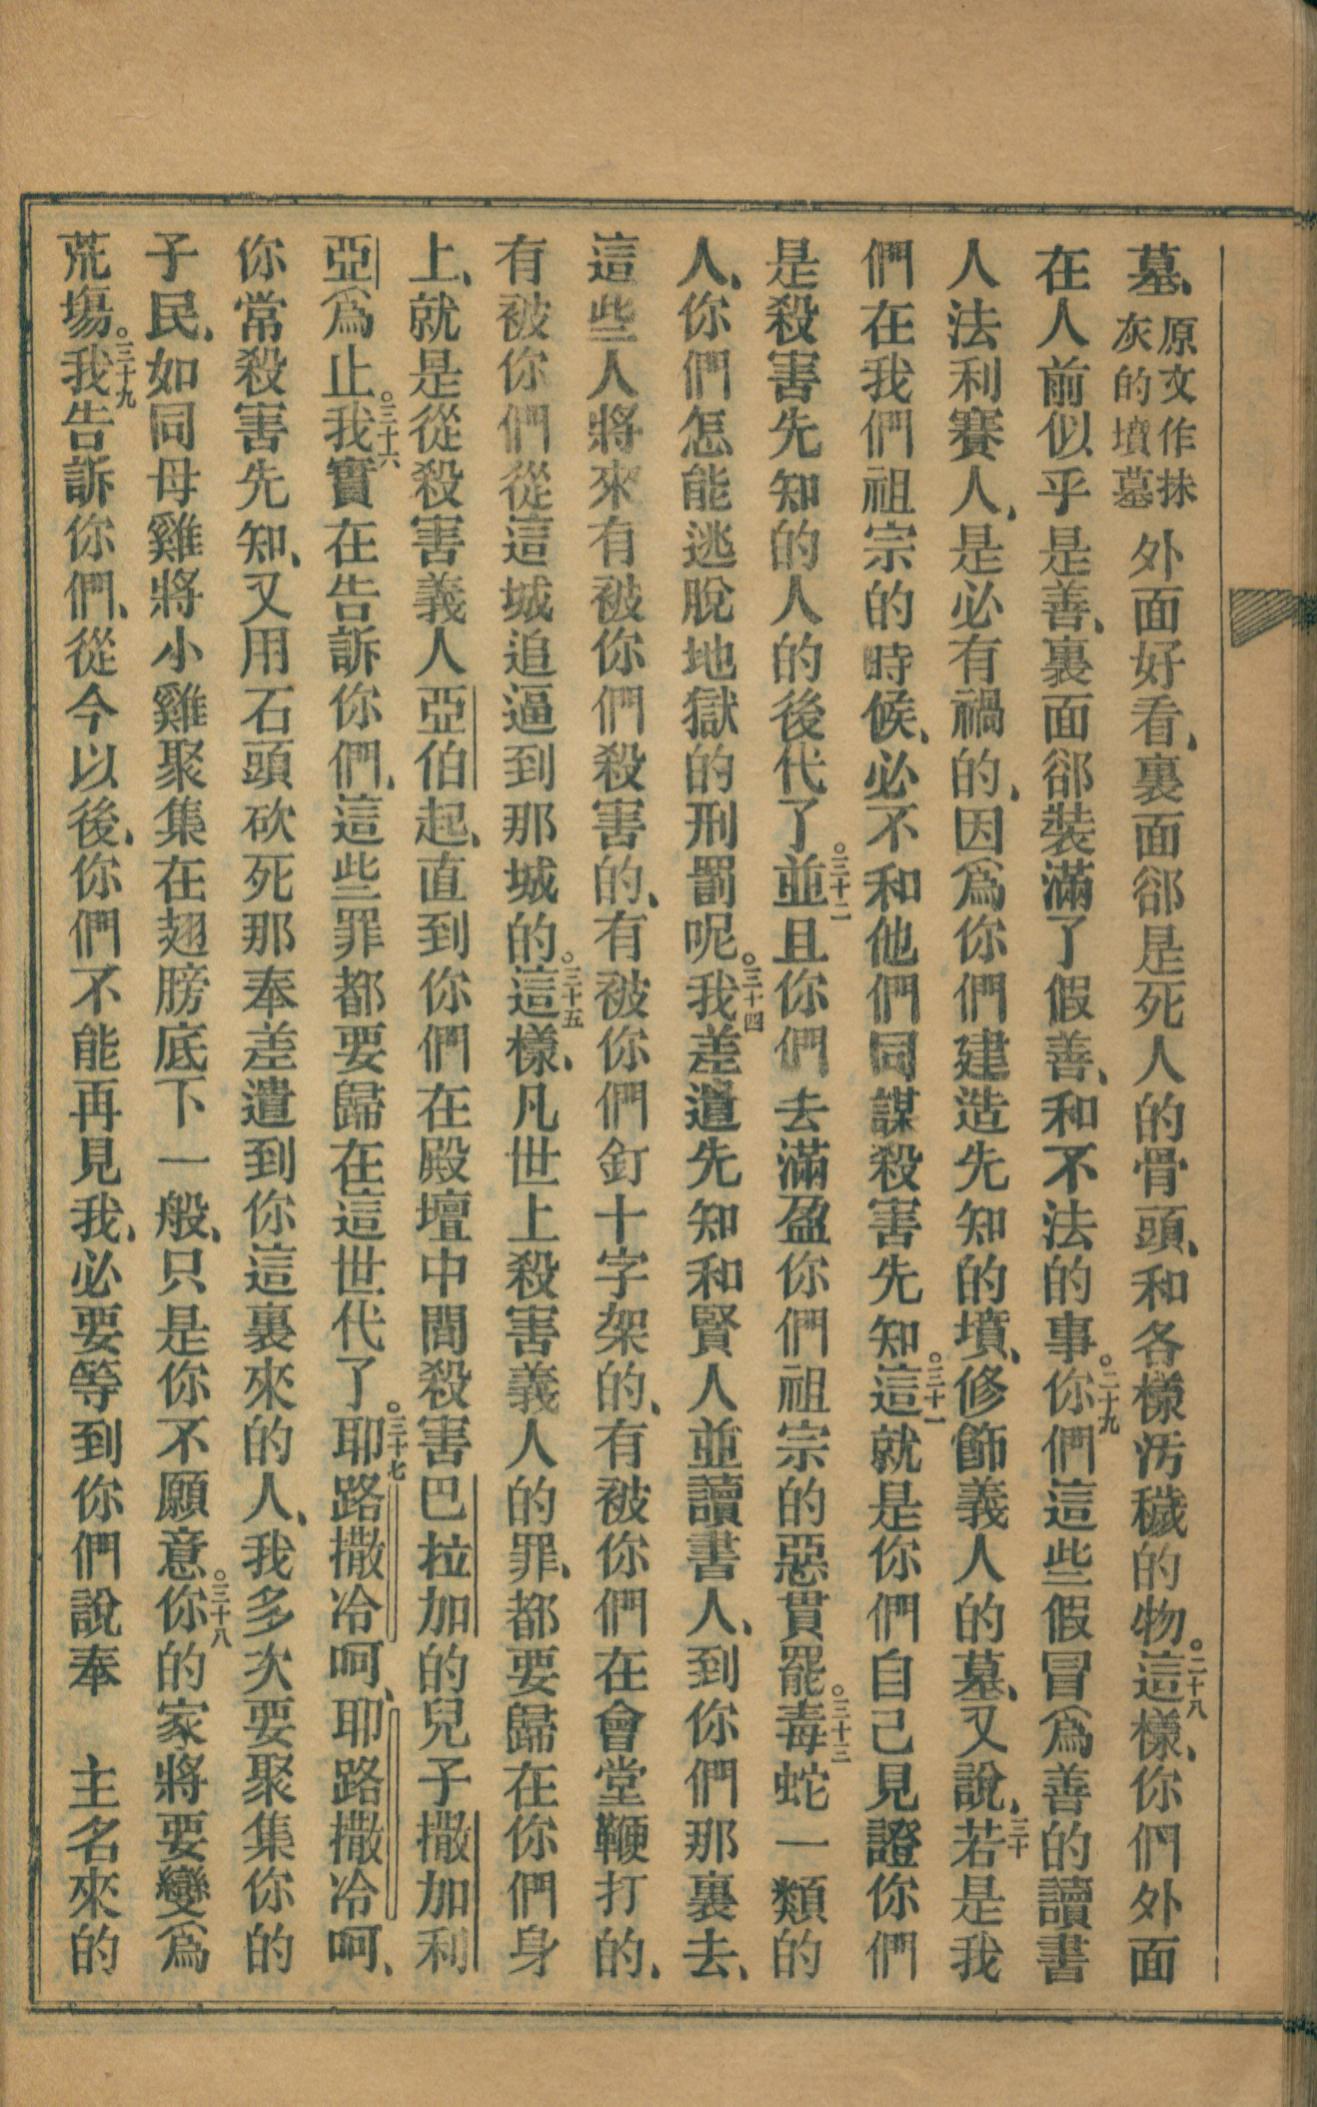 墓、原文作抹灰的墳墓外面好看、裏面郤是死人的骨頭、和各樣汚穢的物。二十八這樣、你們外面
在人前似乎是善、裏面郤裝滿了假善、和不法的事。二十九你們這些假冒爲善的讀書
人法利賽人、是必有禍的、因爲你們建造先知的墳、修飾義人的墓、又說、三十若是我
們在我們祖宗的時候、必不和他們同謀殺害先知。三十一這就是你們自己見證你們
是殺害先知的人的後代了。三十二並且你們去滿盈你們祖宗的惡貫罷。三十三毒蛇一類的
人、你們怎能逃脫地獄的刑罰呢。三十四我差遣先知和賢人並讀書人、到你們那裏去、
這些人將來有被你們殺害的、有被你們釘十字架的、有被你們在會堂鞭打的、
有被你們從這城追逼到那城的。三十五這樣、凡世上殺害義人的罪、都要歸在你們身
上、就是從殺害義人亞伯起、直到你們在殿壇中間殺害巴拉加的兒子撒加利
亞爲止。三十六我實在告訴你們、這些罪都要歸在這世代了。三十七耶路撒冷呵、耶路撒冷呵、
你常殺害先知、又用石頭砍死那奉差遣到你這裏來的人、我多次要聚集你的
子民、如同母雞將小雞聚集在翅膀底下一般、只是你不願意。三十八你的家將要變爲
荒塲。三十九我告訴你們、從今以後、你們不能再見我、必要等到你們說奉　主名來的